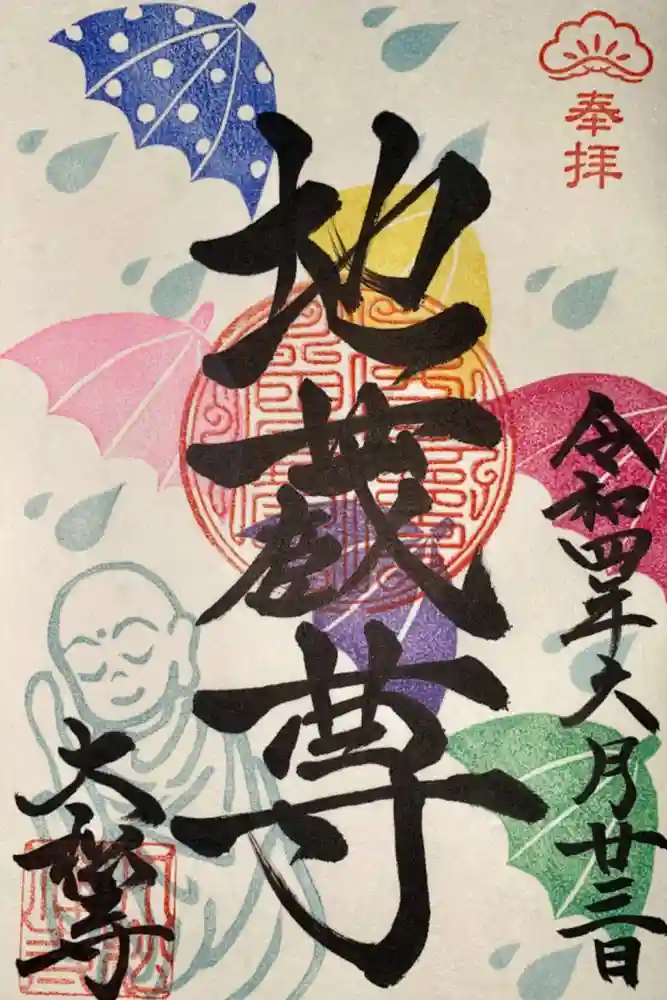 奉拝
令和四年六月廿三日
地蔵尊
大松寺